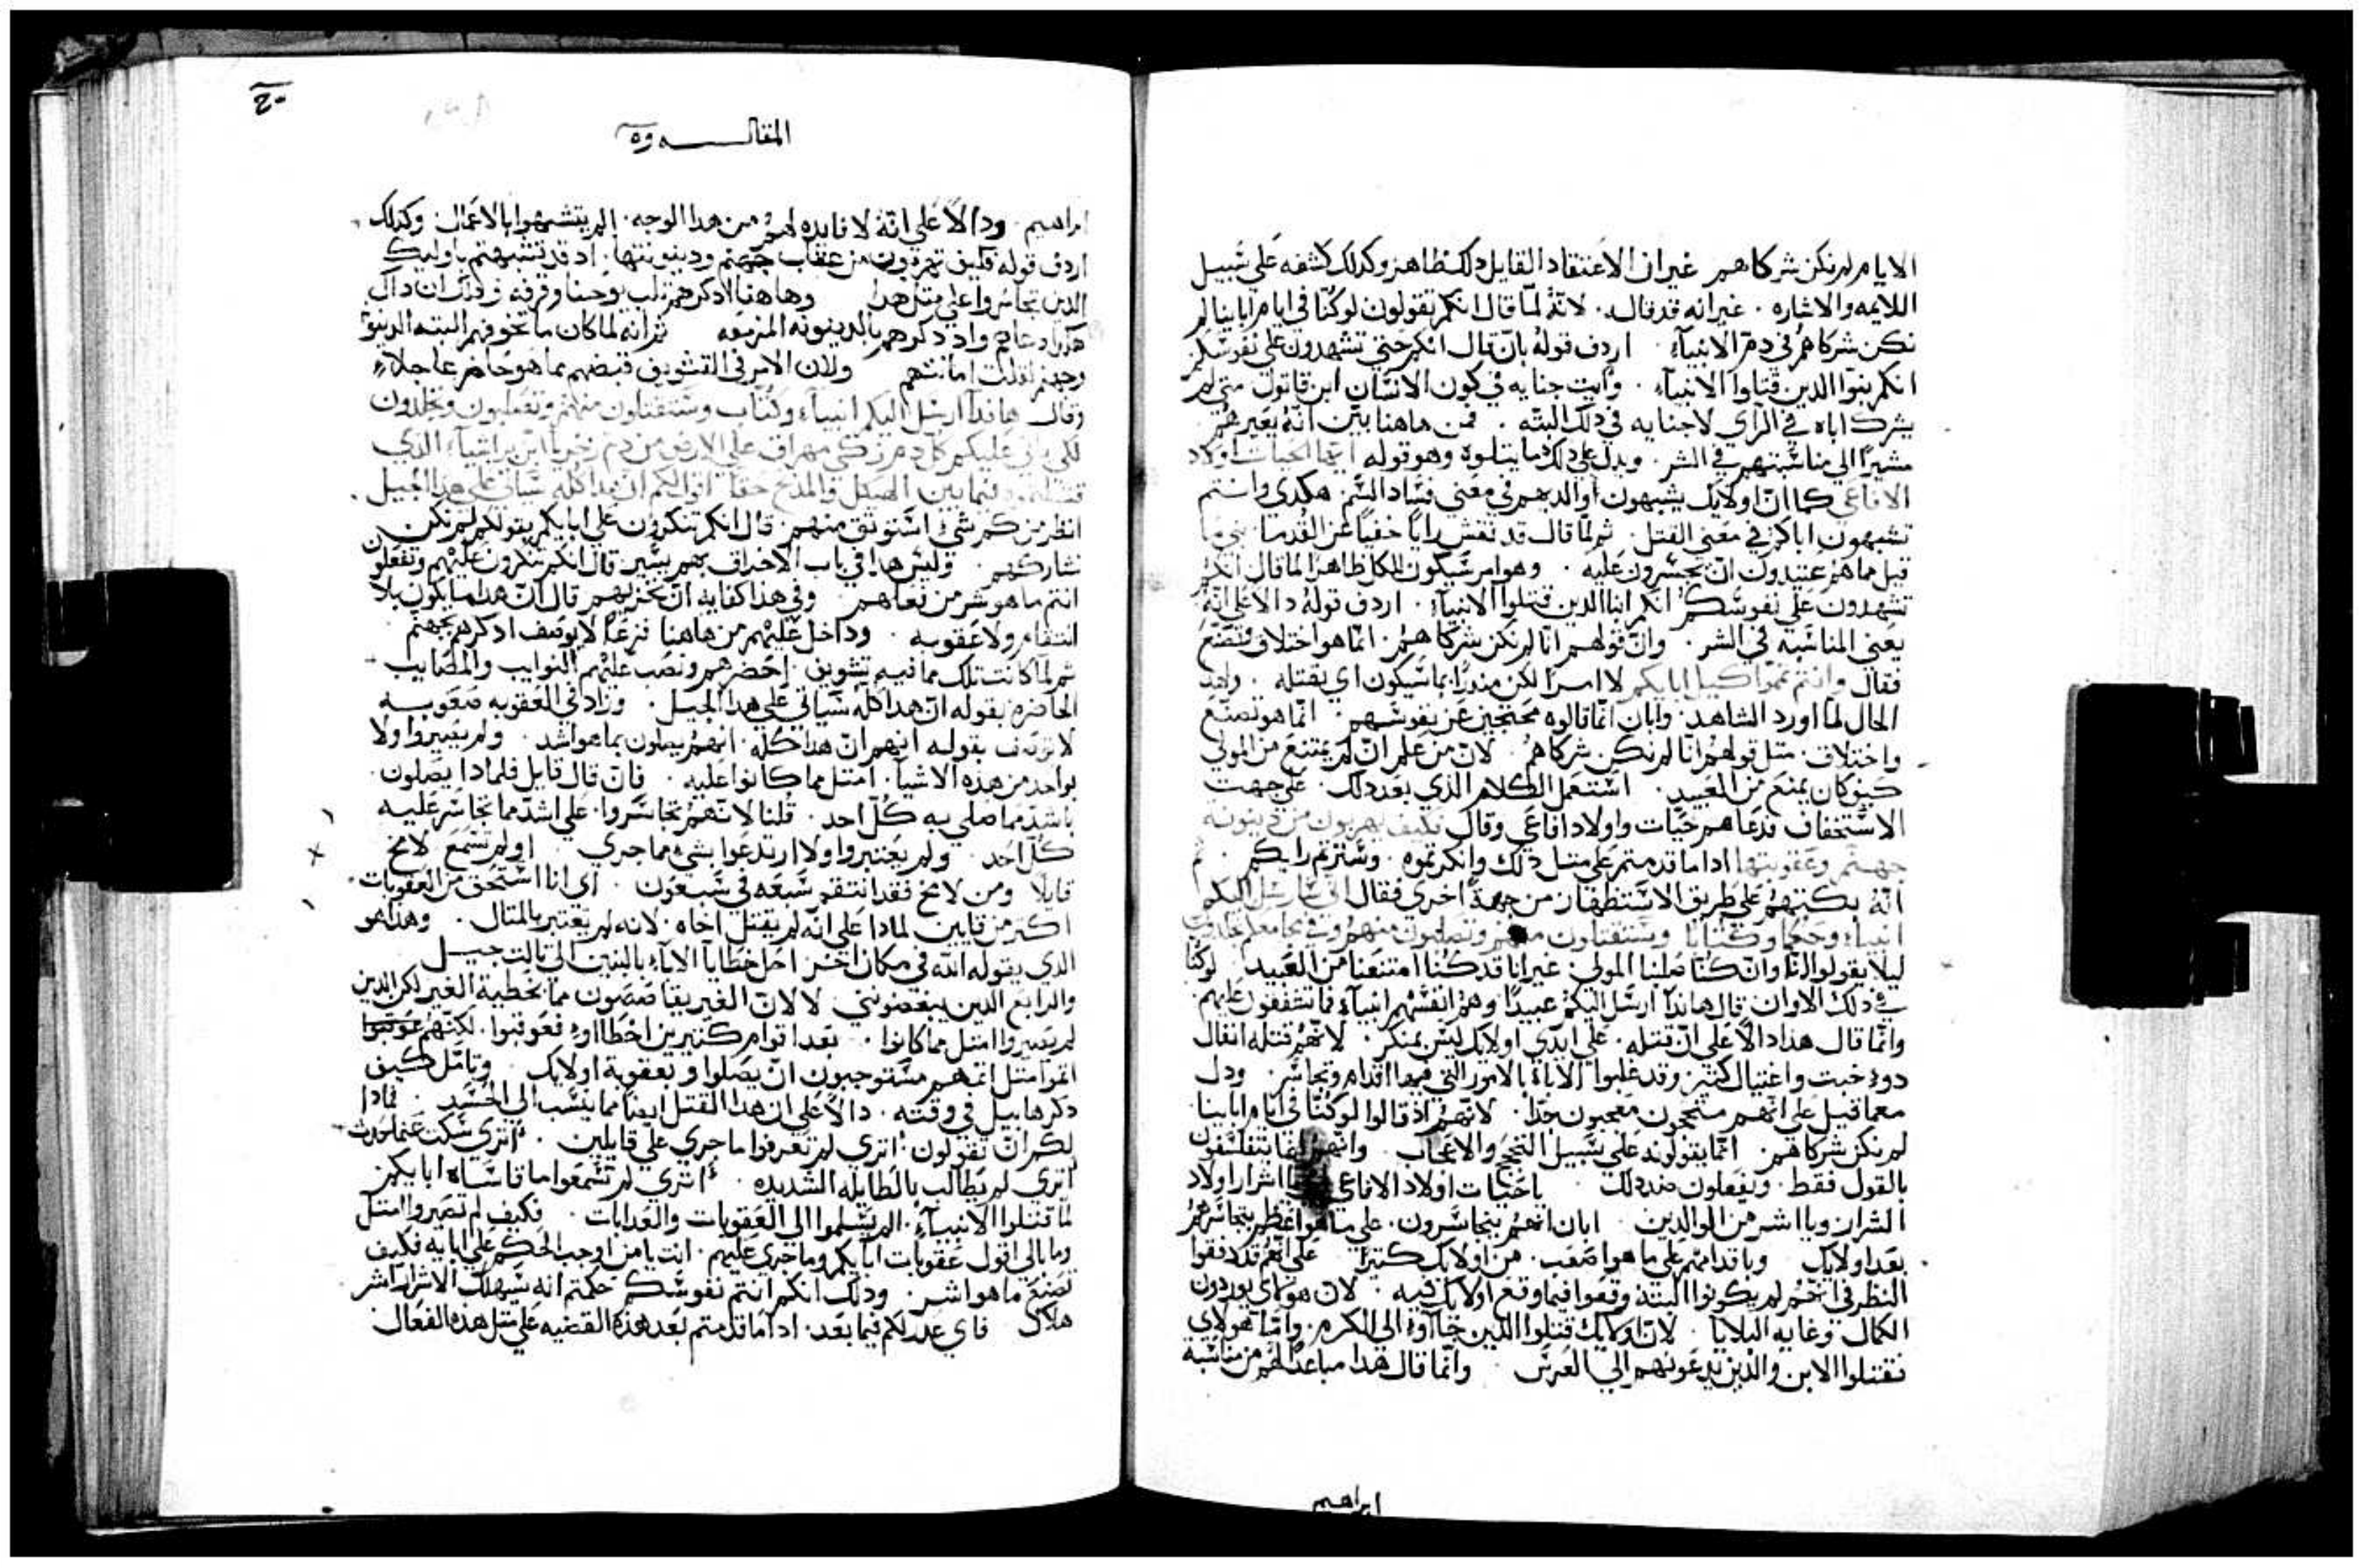 الايام لم نكن شركاهم غير ان الاعتقاد القايل دلك ظاهر وكدلك كشفه علي سَبيل
اللايمه والاشاره . غير انه قد قال . لانّهُ لمّا قال انكم تقولون لو كُنّا في ايام ابا ينا لم
نكن شركاهُم في دم الانبيآء . اردف قولهُ بان قال انكم حتي تشهدون علي نفوسَكم
انكم بنوا الدين قتلوا الانبيآء . وايت جنايه في كون الانسَان ابن قاتول متي لم
يشرك اباه في الرآي لا جنايه في دلك البتّه . فمن هاهنا بيّن انّهُ يعَيرهم
مشيرًا الي مناسَبتهم في الشر . ويدل علي دلك ما يتلوه وهو قوله ايّها الحيات اولاد
الافاعَي كما ان اولايك يشبهون اوالدهم في معَني فسَاد السَّم . هكدي وانتم
تشبهون اباكم في معَني القتل . ثم لمّا قال قد نفتش رايًا خفيًا عَن القدما
قبل ما هُم عَتيدون ان يجسَرون عَليه . وهو امر سَيكون للكل ظاهرًا لما قال انكم
تشهدون عَلي نفوسَكُم انكم ابنا الدين قتلوا الانبيآء . اردف قولهُ دالاً عَلي انّهُ
يعَني المناسَبه في الشر . وان قولهم انّا لم نكن شركاهُم . انّما هو اختلاف وتصَنّعَ
فقال وانتم تمّوا كيل ابايكم لا امرًا لكن مندرًا بما سَيكون اي بقتله .
الحال لما اورد الشاهد . وابان انّما قالوه محتجين عَن نفوسَهم . انّما هو تصنّعَ
واختلاف . متل قولهُم انّا لم نكن شركاهُم . لان من عَلم ان لم يمتنعَ من المولي
كيف كان يمتنعَ من العَبيد . اسَتعَمل الكلام الدي بعَد دلك . عَلي جهت
الاسَتخفاف فدعَاهم حيَات واولاد افاعَي وقال فكيف تهربون من دينونة
جهنّم وعَقوبتها ادا ما قدمتم عَلي متل دلك وانكرتموه . وسَترتم رايكم . ثم
انّهُ يبكتهُم عَلي طريق الاسَتظهار من جهةً اخري فقال انّي سَارسَل اليكم
انبيآء وحكما وكتابًا وسَتقتلون منهم وتصَلبون منهُم وفي مجامعَكم تجلدون
ليلا يقولوا انّا وان كنّا صَلبنا المولي . غير انا قد كُنّا امتنعَنا من العَبيد لو كُنا
في دلك الاوان . قال هاندا ارسَل اليكُم عَبيدًا وهُم انفسَهُم انبيآء فما تشفقون عَليهم
وانّما قال هدا دالاً عَلي ان قتله . علي ايدي اولايك ليس بمنكر . لانّهُم قتله انفال
دوو خبت واغتيال كتير وقد غلبوا الاباء بالامور التي فيها اقدام وتجاسَر . ودل
معما قيل علي انّهم متبجحون معَجبون جدًا . لانّهُم اد قالوا لو كُنّا في ايام ابا ينا
لم نكن شركاهم . انّما يقولونه عَلي سَبيل التبجح والاعَجاب . وانّهم انّما يتفلسَفون
بالقول فقط . ويفعَلون ضد دلك . يا حيَات اولاد الافاعي يا اشرار اولاد
الشرار ويا اشر من الوالدين . ابان انهُم يتجاسَرون . علي ما هو اعَظم بتجاسَرهُم
بعَد اولايك وباقدامهم علي ما هو اصَعَب . من اولايك كتيرًا عَلي انّهُم قد دققوا
النظر في انّهُم لم يكونوا البتّه وقعَوا فيما وقع اولايك فيه . لان هولاي يوردون
الكمال وغايه البلايا . لان اولايك قتلوا الدين جآاوا الي الكرم . وامّا هولاي
فقتلوا الابن والدين يدعَونهم الي العَرسَ . وانّما قال هدا مباعدًا لهُم من مناسَبة
ابراهيم
المقالـــــــه
ابراهيم . ودالاً عَلي انّهُ لا فايده لهُم من هدا الوجه . ان لم يتشبهوا بالاعَمال . وكدلك
اردف قوله فكيف تهربون من عقاب جهنم ودينونتها . اد قد تشبهتم باوليك
الدين تجاسَروا علي متل هدا . وهاهنا ادكرهم تلب يوحنا وقرفه ان داك
هكدا دعاهم وادكرهم بالدينونه المزمعَه ثم انه لما كان ما تخوفهم البته الدينونه
وجهنم لقلت امانتهم ولان الامر في التشويق قبضهم بما هو حاضر عاجلاً
وقال هاندا ارسَل اليكم انبيآء وكُتّاب وسَتقتلون منهم وتصَلبون وتجلدون
لكي ياتي عليكم كل دم زكي مهراق علي الارض من دم زخريا ابن براشيا الدي
قتلتموه فيما بين الهيكل والمدبح حقًا اقول لكم ان هدا كُله سَياتي علي هدا الجيل .
انظر من كم شيٍ اسَتوتق منهم . قال انكم تنكرون علي ابايكم بقولكم لم نكن
نشاركهم . وليسَ هدا في باب الانحراف بهم يسَير قال انكم تنكرون عَليهم وتفعَلون
انتم ما هو شر من فعَلهم وفي هدا كفايه ان تخزيهم قال ان هدا ما يكون بلا
انتقام ولا عَقوبه . وداخل عَليهم من هاهنا فزعًا لا يوصَف اد كرهم بجهنم .
ثم لمّا كانت تلك مما فيه تشويق . احضرهم ونصَب عَليهم النوايب والمصَايب
الحاضره بقوله ان هدا كُله سَياتي عَلي هدا الجيل . وزاد في العَقوبه صعَوبــه
لا توصف بقولــه انهم ان هدا كُله . انهُم يصلون بما هو اشد . ولم يصَيروا ولا
بواحد من هده الاشيآ . امتل مما كانوا عَليه . فان قال قايل فلمادا يصَلون
باشد مما صَلي به كُل احد . قُلنا لانّهُم تجاسَروا . عَلي اشد مما تجاسَر عَليـه
كُل احَد . ولم يعَتبروا ولا ارتدعَوا بشيء مما جري . اولم تسَمَعَ لامخ
قايلاً ومن لامخ فقد انتقم سَبعَه في سَبعَون . اي انا اسَتحق من العَقوبات
اكتر من قايين لمادا عَلي انّه لم يقتل اخاه . لانه لم يعَتبر بالمتال . وهدا هو
الدي يقوله اللّه في مكان اخر احَل خطايا الآباء بالبنين الي تالت جيــل
والرابعَ الدين يبغضَونني لا لان الغير يقاصَصَون عما يخطيه الغير لكن الدين
لم يصَيروا امتل مما كانوا . بعَد اقوام كتيرين اخطااوا وعَوقبوا . لكنّهُم
امتل انّهم مسَتوجبون ان يصَلوا وبعَقوبة اولايك . وتامّل كيف
دكر هابيل في وقته . دالاً عَلي ان هدا القتل ايضًا مما ينسَب الي الحسَد . فمادا
لكم ان تقولون . اتري لم تعَرفوا ما جري عَلي قايين . اتري سَكت عَمّا حدث
اتري لم يطالب بالطايله الشديده . اتري لم تسَمعَوا ما قاسَاه ابايكم
لمّا قتلوا الانبيآء . الم يسَلموا الي العَقوبات والعَدابات . فكيف لم تصيروا امتل
وما بالي اقول عَقوبات ابايكم وما جري عَليهم . انت يا من اوجب الحكم علي ابايه فكيف
تصَنعَ ما هو اشر . ودلك انكم انتم نفوسَكم حكمتم انه سَيهلك الاشرار اشر
هلاك فاي عدر لكم فيما بعَد . ادا ما قدمتم بعَد هده القضيه علي متل هده الفعَال